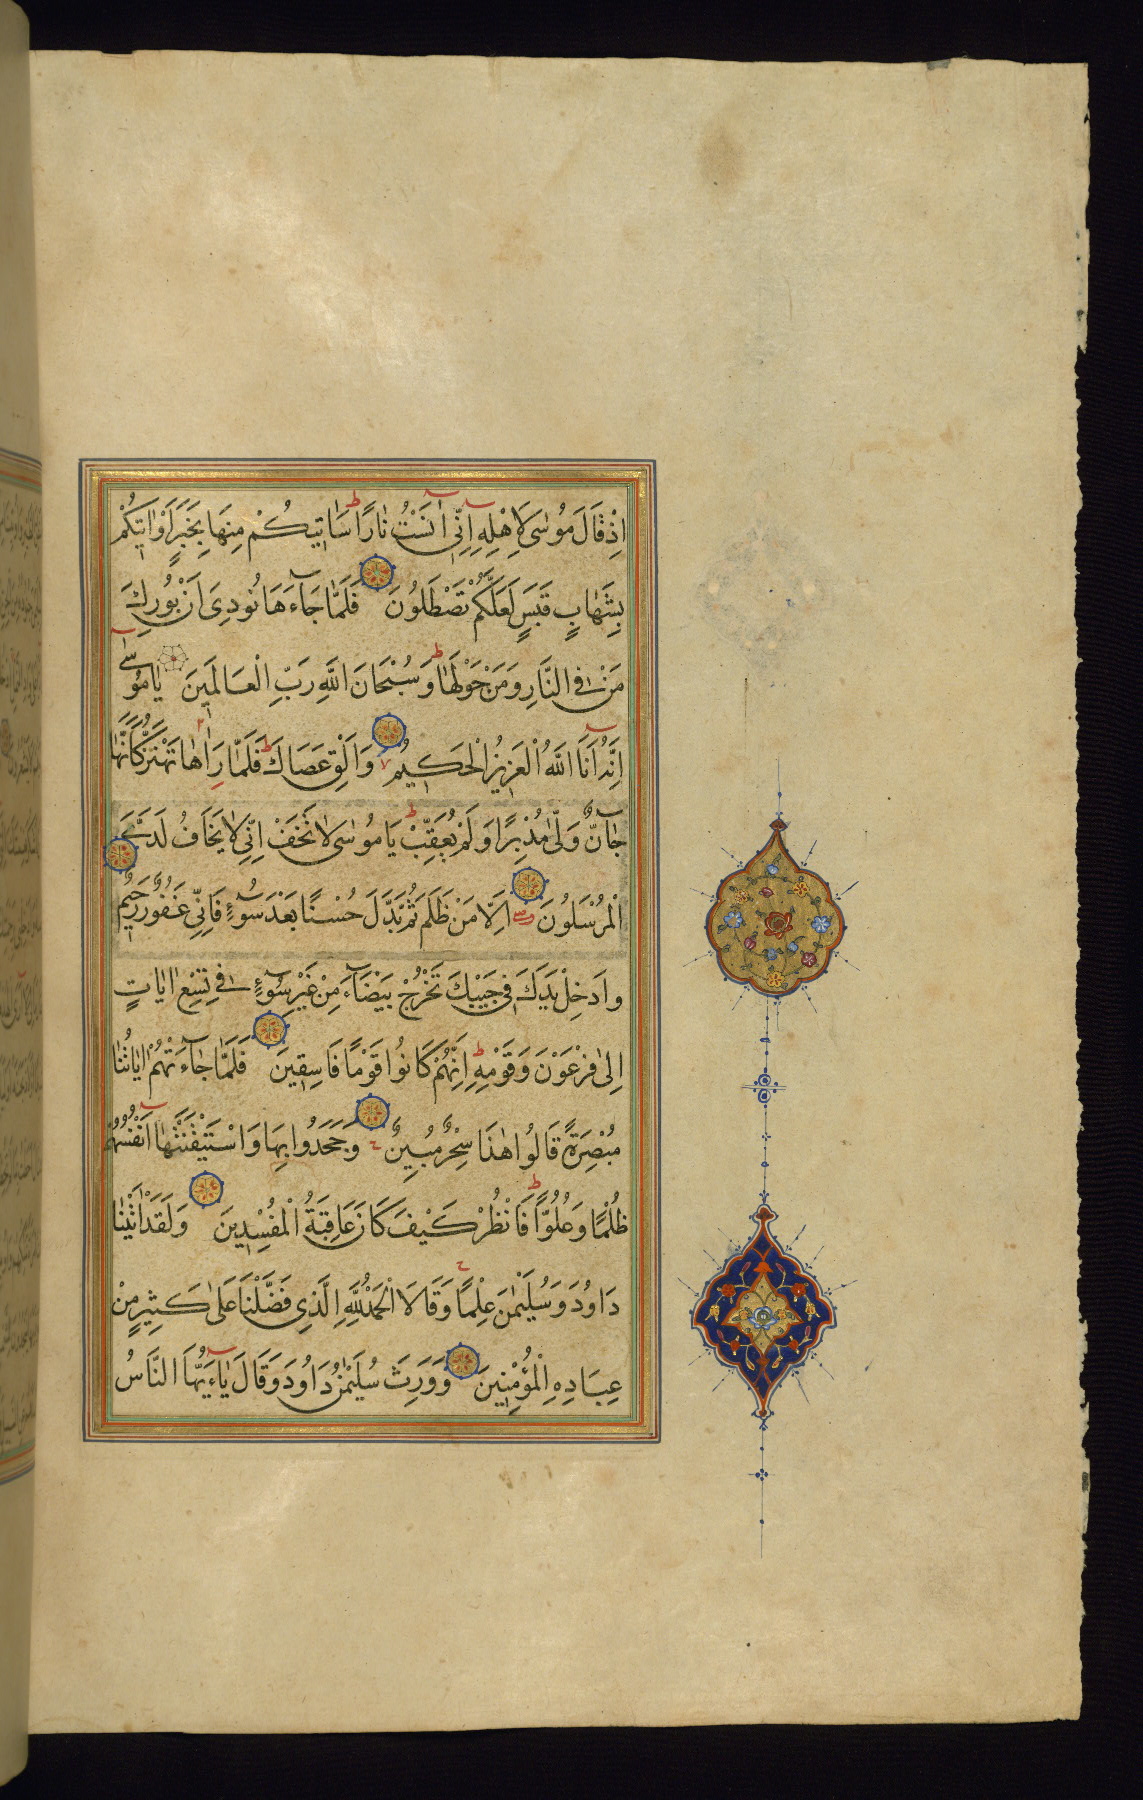 اِذْ قَالَ مُوسٰى لِاَهْلِهِ اِنّٖى اٰنَسْتُ نَارًا سَاٰتٖيكُمْ مِنْهَا بِخَبَرٍ اَوْ اٰتٖيكُمْ
بِشِهَابٍ قَبَسٍ لَعَلَّكُمْ تَصْطَلُونَ فَلَمَّا جَآءَهَا نُودِىَ اَنْ بُورِكَ
مَنْ فِى النَّارِ وَمَنْ حَوْلَهَا وَسُبْحَانَ اللّٰهِ رَبِّ الْعَالَمٖينَ يَا مُوسٰى
اِنَّهُ اَنَا اللّٰهُ الْعَزٖيزُ الْحَكٖيمُ وَاَلْقِ عَصَاكَ فَلَمَّا رَاٰهَا تَهْتَزُّ كَاَنَّهَا
جَآنٌّ وَلّٰى مُدْبِرًا وَلَمْ يُعَقِّبْ يَا مُوسٰى لَا تَخَفْ اِنّٖى لَا يَخَافُ لَدَىَّ
الْمُرْسَلُونَ اِلَّا مَنْ ظَلَمَ ثُمَّ بَدَّلَ حُسْنًا بَعْدَ سُوٓءٍ فَاِنّٖى غَفُورٌ رَحٖيمٌ
وَاَدْخِلْ يَدَكَ فٖى جَيْبِكَ تَخْرُجْ بَيْضَآءَ مِنْ غَيْرِ سُوٓءٍ فٖى تِسْعِ اٰيَاتٍ
اِلٰى فِرْعَوْنَ وَقَوْمِهِ اِنَّهُمْ كَانُوا قَوْمًا فَاسِقٖينَ فَلَمَّا جَآءَتْهُمْ اٰيَاتُنَا
مُبْصِرَةً قَالُوا هٰذَا سِحْرٌ مُبٖينٌ وَجَحَدُوا بِهَا وَاسْتَيْقَنَتْهَا اَنْفُسُهُمْ
ظُلْمًا وَعُلُوًّا فَانْظُرْ كَيْفَ كَانَ عَاقِبَةُ الْمُفْسِدٖينَ وَلَقَدْ اٰتَيْنَا
دَاوُدَ وَسُلَيْمٰنَ عِلْمًا وَقَالَا الْحَمْدُ لِلّٰهِ الَّذٖى فَضَّلَنَا عَلٰى كَثٖيرٍ مِنْ
عِبَادِهِ الْمُؤْمِنٖينَ وَوَرِثَ سُلَيْمٰنُ دَاوُدَ وَقَالَ يَآءَيُّهَا النَّاسُ